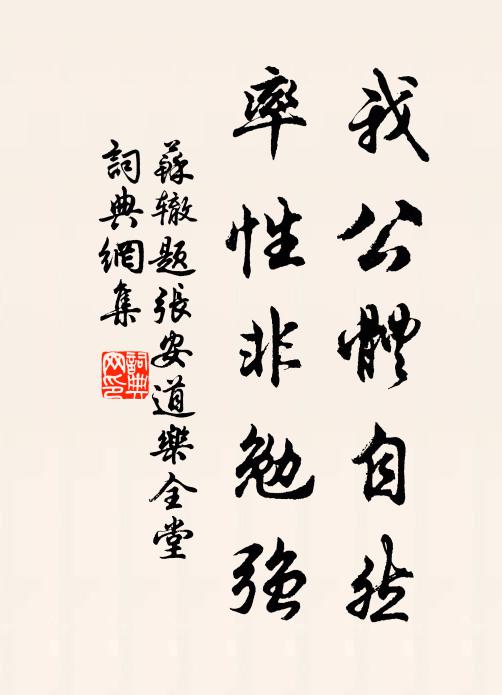 我公體自然
率性非勉强
蘇辙题張安道樂全堂
詞典網集
詞典
网印